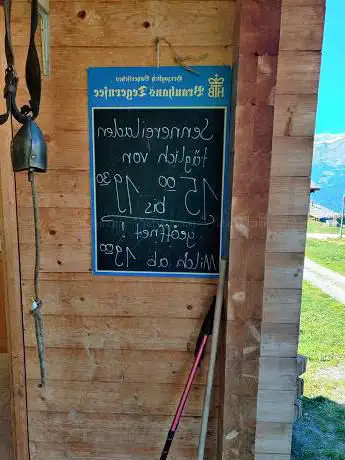 Herzoglich Bayerisches
Brauhaus Tegernsee
Sennereiladen
täglich von
15 00 bis 19 30
geöffnet!
Milch ab 19 00